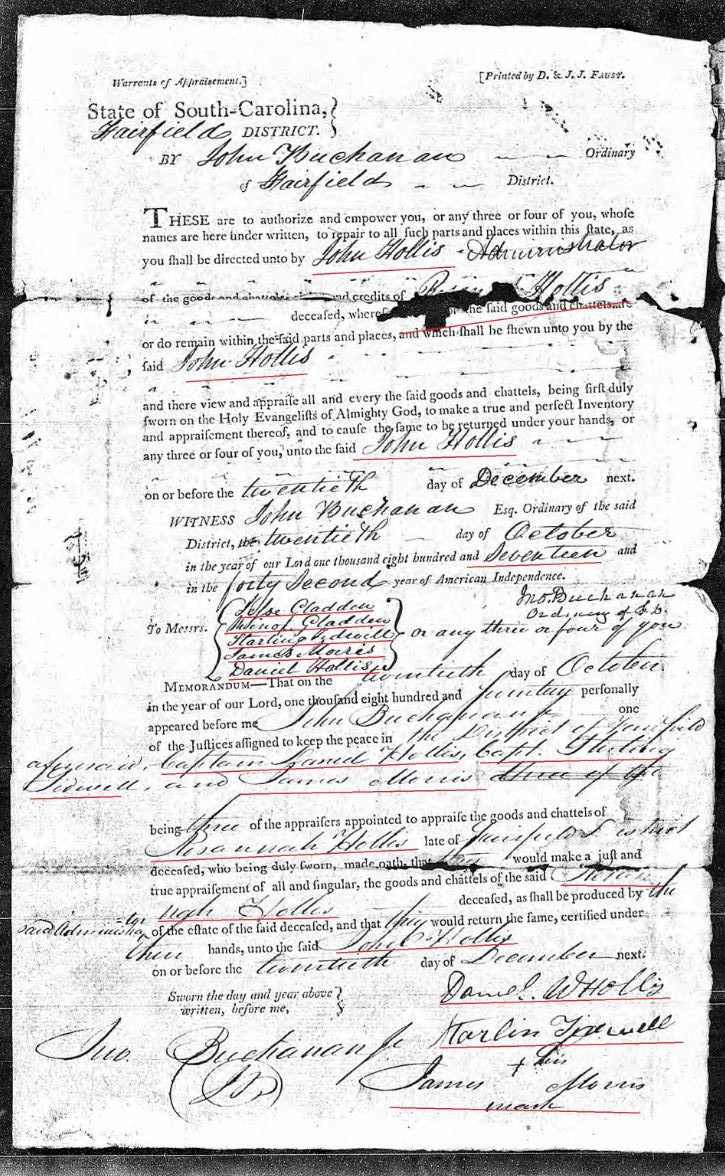 Warrants of Appraisement.]
[Printed by D. & J. J. FAUST.
State of South-Carolina,
Fairfield DISTRICT.
BY John Buchanan Ordinary
of Fairfield District.
THESE are to authorize and empower you, or any three or four of you, whose
names are here under written, to repair to all such parts and places within this state, as
you shall be directed unto by John Hollis Administrator
of the goods and chattels and credits of Hollis
deceased, the said goods and chattels are
or do remain within the said parts and places, and which shall be shewn unto you by the
said John Hollis
and there view and appraise all and every the said goods and chattels, being first duly
sworn on the Holy Evangelists of Almighty God, to make a true and perfect Inventory
and appraisement thereof, and to cause the same to be returned under your hands, or
any three or four of you, unto the said John Hollis
on or before the twentieth day of December next.
WITNESS John Buchanan Esq. Ordinary of the said
District, the twentieth day of October
in the year of our Lord one thousand eight hundred and Seventeen and
in the forty Second year of American Independence.
Jno. Buchanan
Ordinary of F.D.
To MESSRS. Gladden
Gladden
Starling Tidwell or any three or four of you
James Morris
Daniel Hollis
MEMORANDUM—That on the twentieth day of October
in the year of our Lord, one thousand eight hundred and personally
appeared before me John Buchanan one
of the Justices assigned to keep the peace in the District of Fairfield
aforesaid, Captain Daniel Hollis, Capt. Starling
Tidwell, and James Morris three of the
being three of the appraisers appointed to appraise the goods and chattels of
Hollis late of Fairfield District
deceased, who being duly sworn, made oath, that they would make a just and
true appraisement of all and singular, the goods and chattels of the said
Hollis deceased, as shall be produced by the
said Administrator of the estate of the said deceased, and that they would return the same, certified under
their hands, unto the said John Hollis
on or before the twentieth day of December next.
Sworn the day and year above
written, before me,
Daniel W Hollis
Starlin Tidwell
Jno. Buchanan
his
James + Morris
mark